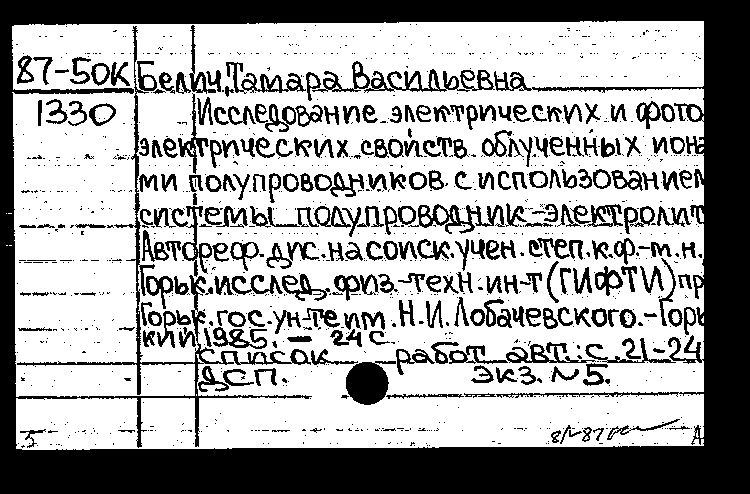 87-50К Белич, Тамара Васильевна
1330 Исследование электрических и фото
электрических свойств облученных иона
ми полупроводников с использованием
системы полупроводник-электролит
Автореф. дис. на соиск. учен. степ. к.ф.-м.н.
Горьк. исслед. физ.-техн. ин-т (ГИФТИ) пр
Горьк. гос. ун-те им. Н.И. Лобачевского. - Горь
кий, 1985. - 24 с.
Список работ авт.: с. 21-24
ДСП. Экз. №5.
5